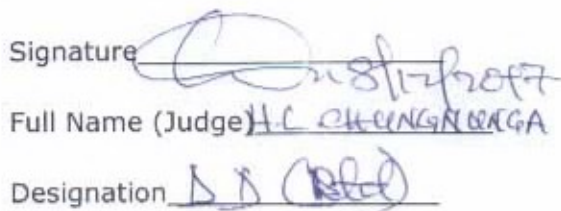 Signature 8/12/2017
Full Name (Judge) H.C CHUNGNUNGA
Designation D D